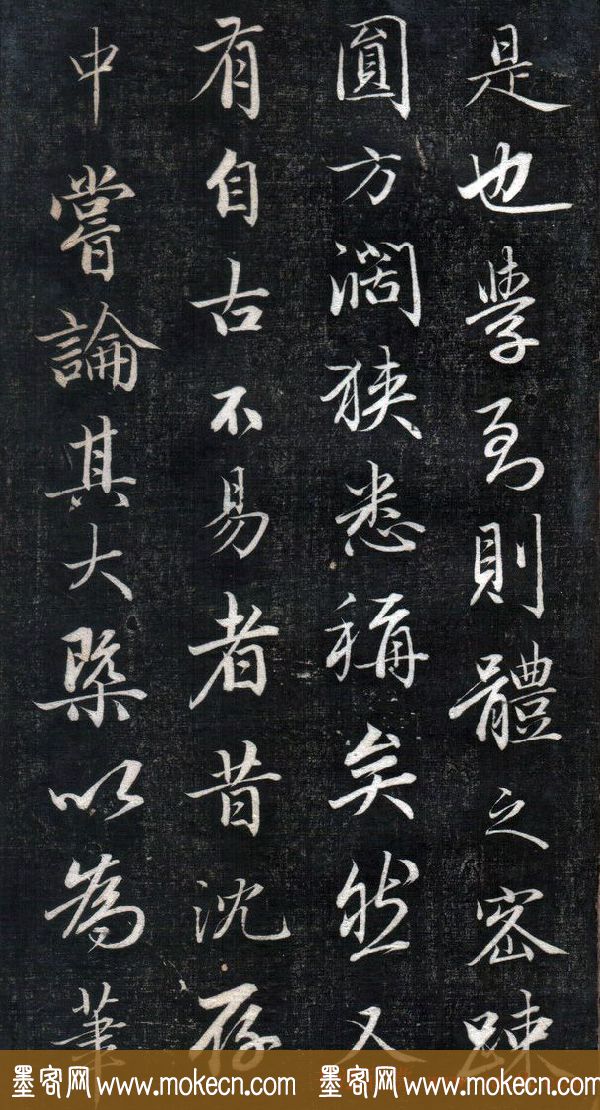 是也學到則體之密疎
圓方濶狹悉稱矣然又
有自古不易者昔沈存
中嘗論其大槩以為筆
墨客网 www.mokecn.com 墨客网 www.mokecn.com